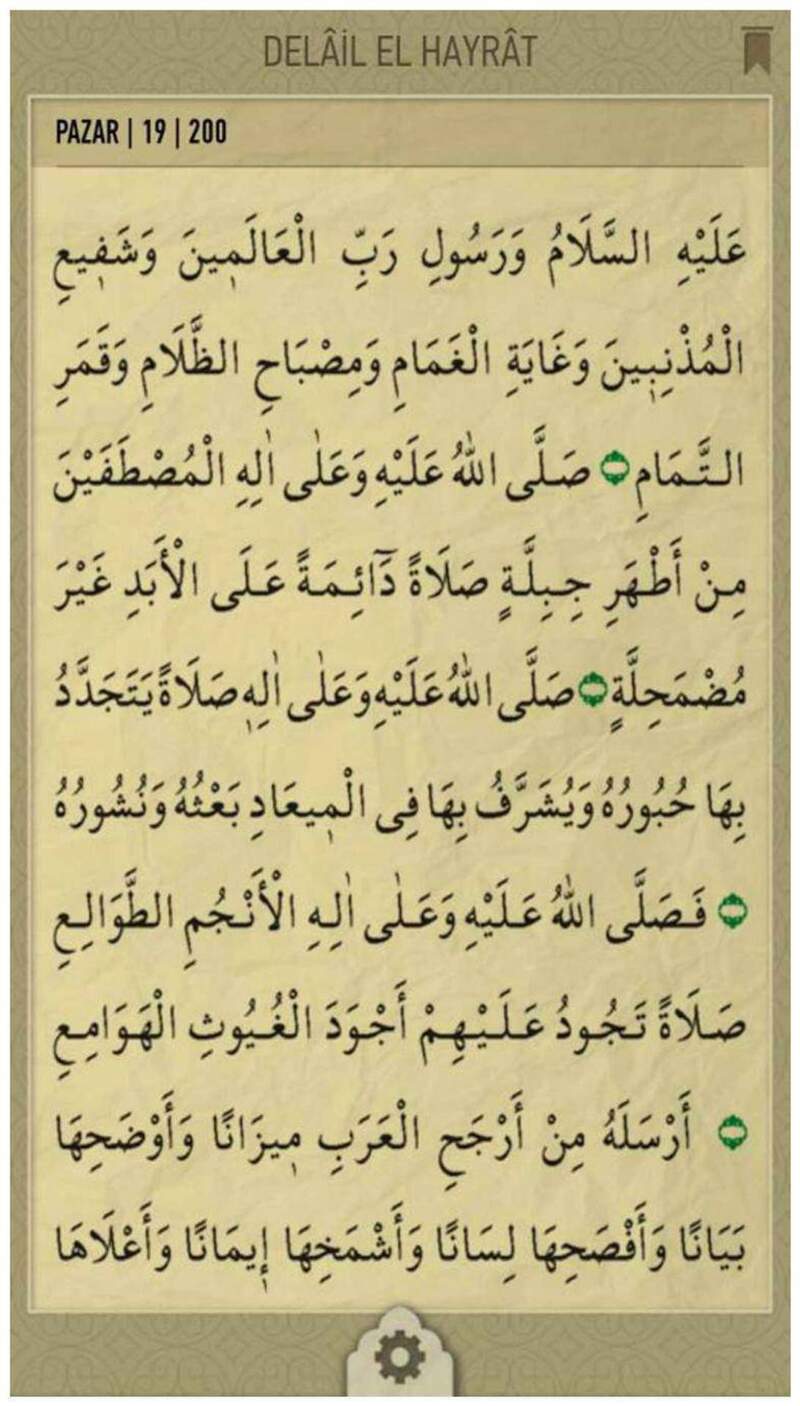 DELÂİL EL HAYRÂT
PAZAR | 19 | 200
عَلَيْهِ السَّلَامُ وَرَسُولِ رَبِّ الْعَالَمٖينَ وَشَفٖيعِ
الْمُذْنِبٖينَ وَغَايَةِ الْغَمَامِ وَمِصْبَاحِ الظَّلَامِ وَقَمَرِ
التَّمَامِ ۝ صَلَّى اللهُ عَلَيْهِ وَعَلٰى اٰلِهِ الْمُصْطَفَيْنَ
مِنْ أَطْهَرِ جِبِلَّةٍ صَلَاةً دَٓائِمَةً عَلَى الْأَبَدِ غَيْرَ
مُضْمَحِلَّةٍ ۝ صَلَّى اللهُ عَلَيْهِ وَعَلٰى اٰلِهٖ صَلَاةً يَتَجَدَّدُ
بِهَا حُبُورُهُ وَيُشَرَّفُ بِهَا فِى الْمٖيعَادِ بَعْثُهُ وَنُشُورُهُ
۝ فَصَلَّى اللهُ عَلَيْهِ وَعَلٰى اٰلِهِ الْأَنْجُمِ الطَّوَالِعِ
صَلَاةً تَجُودُ عَلَيْهِمْ أَجْوَدَ الْغُيُوثِ الْهَوَامِعِ
۝ أَرْسَلَهُ مِنْ أَرْجَحِ الْعَرَبِ مٖيزَانًا وَأَوْضَحِهَا
بَيَانًا وَأَفْصَحِهَا لِسَانًا وَأَشْمَخِهَا إٖيمَانًا وَأَعْلَاهَا